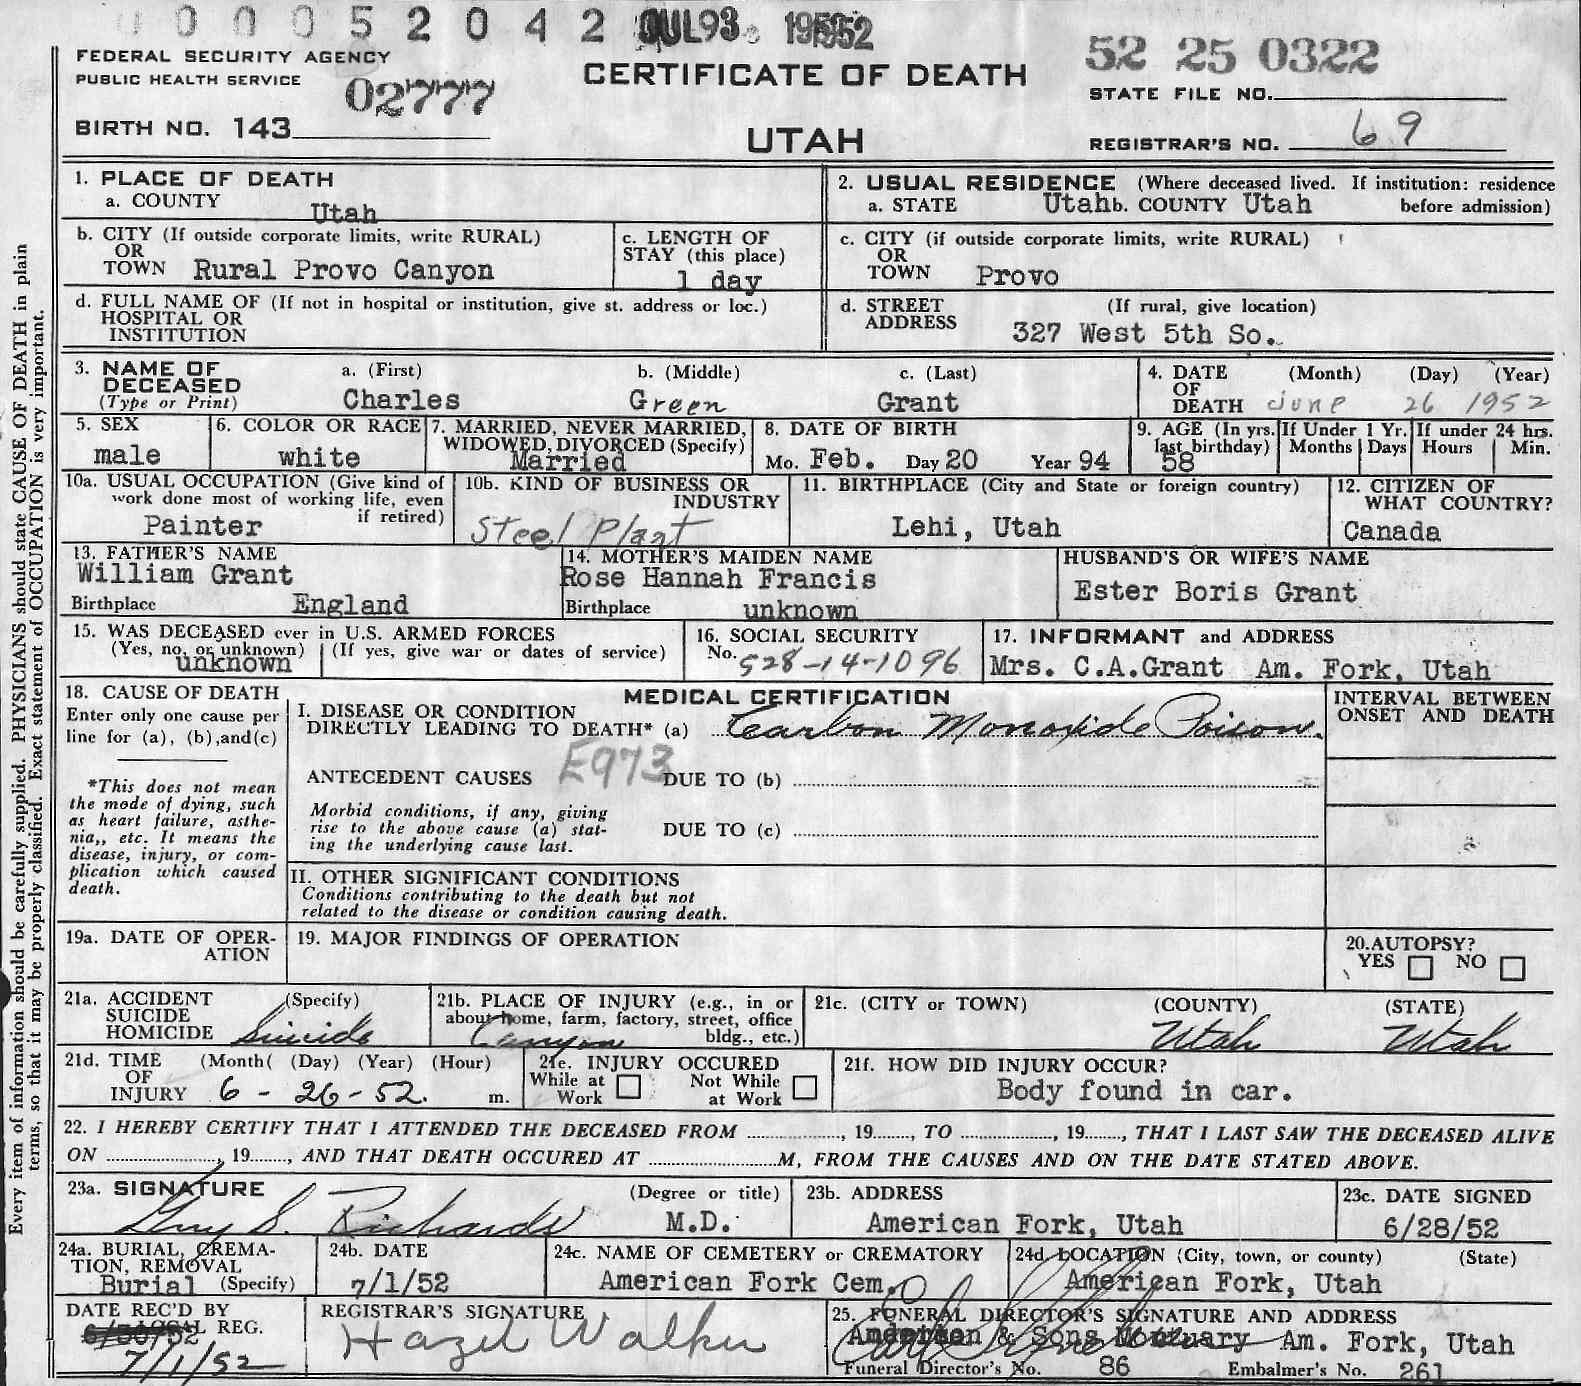 00052042 JUL 1952
FEDERAL SECURITY AGENCY
PUBLIC HEALTH SERVICE
02777
BIRTH NO. 143
CERTIFICATE OF DEATH
UTAH
52 25 0322
STATE FILE NO.
REGISTRAR'S NO. 69
1. PLACE OF DEATH
a. COUNTY Utah
b. CITY (If outside corporate limits, write RURAL)
OR
TOWN Rural Provo Canyon
c. LENGTH OF
STAY (this place)
1 day
d. FULL NAME OF (If not in hospital or institution, give st. address or loc.)
HOSPITAL OR
INSTITUTION
2. USUAL RESIDENCE (Where deceased lived. If institution: residence
a. STATE Utah b. COUNTY Utah before admission)
c. CITY (if outside corporate limits, write RURAL)
OR
TOWN Provo
d. STREET (If rural, give location)
ADDRESS 327 West 5th So.
3. NAME OF
DECEASED
(Type or Print)
a. (First) b. (Middle) c. (Last)
Charles Green Grant
4. DATE (Month) (Day) (Year)
OF
DEATH June 26 1952
5. SEX
male
6. COLOR OR RACE
white
7. MARRIED, NEVER MARRIED,
WIDOWED, DIVORCED (Specify)
Married
8. DATE OF BIRTH
Mo. Feb. Day 20 Year 94
9. AGE (In yrs.
last birthday)
58
If Under 1 Yr.
Months Days
If under 24 hrs.
Hours Min.
10a. USUAL OCCUPATION (Give kind of
work done most of working life, even
if retired)
Painter
10b. KIND OF BUSINESS OR
INDUSTRY
Steel Plant
11. BIRTHPLACE (City and State or foreign country)
Lehi, Utah
12. CITIZEN OF
WHAT COUNTRY?
Canada
13. FATHER'S NAME
William Grant
Birthplace England
14. MOTHER'S MAIDEN NAME
Rose Hannah Francis
Birthplace unknown
HUSBAND'S OR WIFE'S NAME
Ester Boris Grant
15. WAS DECEASED ever in U.S. ARMED FORCES
(Yes, no, or unknown) (If yes, give war or dates of service)
unknown
16. SOCIAL SECURITY
No. 528-14-1096
17. INFORMANT and ADDRESS
Mrs. C.A.Grant Am. Fork, Utah
18. CAUSE OF DEATH
Enter only one cause per
line for (a), (b),and(c)
*This does not mean
the mode of dying, such
as heart failure, asthe-
nia,, etc. It means the
disease, injury, or com-
plication which caused
death.
MEDICAL CERTIFICATION
I. DISEASE OR CONDITION
DIRECTLY LEADING TO DEATH* (a) Carbon Monoxide Poison.
ANTECEDENT CAUSES E973 DUE TO (b)
Morbid conditions, if any, giving
rise to the above cause (a) stat-
ing the underlying cause last.
DUE TO (c)
II. OTHER SIGNIFICANT CONDITIONS
Conditions contributing to the death but not
related to the disease or condition causing death.
INTERVAL BETWEEN
ONSET AND DEATH
19a. DATE OF OPER-
ATION
19. MAJOR FINDINGS OF OPERATION
20.AUTOPSY?
YES NO
21a. ACCIDENT (Specify)
SUICIDE
HOMICIDE Suicide
21b. PLACE OF INJURY (e.g., in or
about home, farm, factory, street, office
bldg., etc.)
Canyon
21c. (CITY or TOWN) (COUNTY) (STATE)
Utah Utah
21d. TIME (Month( (Day) (Year) (Hour)
OF
INJURY 6 - 26 - 52. m.
21e. INJURY OCCURED
While at Work
Not While at Work
21f. HOW DID INJURY OCCUR?
Body found in car.
22. I HEREBY CERTIFY THAT I ATTENDED THE DECEASED FROM ........, 19......, TO ........, 19......, THAT I LAST SAW THE DECEASED ALIVE
ON ........, 19......, AND THAT DEATH OCCURED AT ........M, FROM THE CAUSES AND ON THE DATE STATED ABOVE.
23a. SIGNATURE (Degree or title)
Guy S. Richards M.D.
23b. ADDRESS
American Fork, Utah
23c. DATE SIGNED
6/28/52
24a. BURIAL, CREMA-
TION, REMOVAL
Burial (Specify)
24b. DATE
7/1/52
24c. NAME OF CEMETERY or CREMATORY
American Fork Cem.
24d LOCATION (City, town, or county) (State)
American Fork, Utah
DATE REC'D BY
LOCAL REG.
6/30/52
7/1/52
REGISTRAR'S SIGNATURE
Hazel Walker
25. FUNERAL DIRECTOR'S SIGNATURE AND ADDRESS
Anderson & Sons Mortuary Am. Fork, Utah
Funeral Director's No. 86 Embalmer's No. 261
Every item of information should be carefully supplied. PHYSICIANS should state CAUSE OF DEATH in plain
terms, so that it may be properly classified. Exact statement of OCCUPATION is very important.